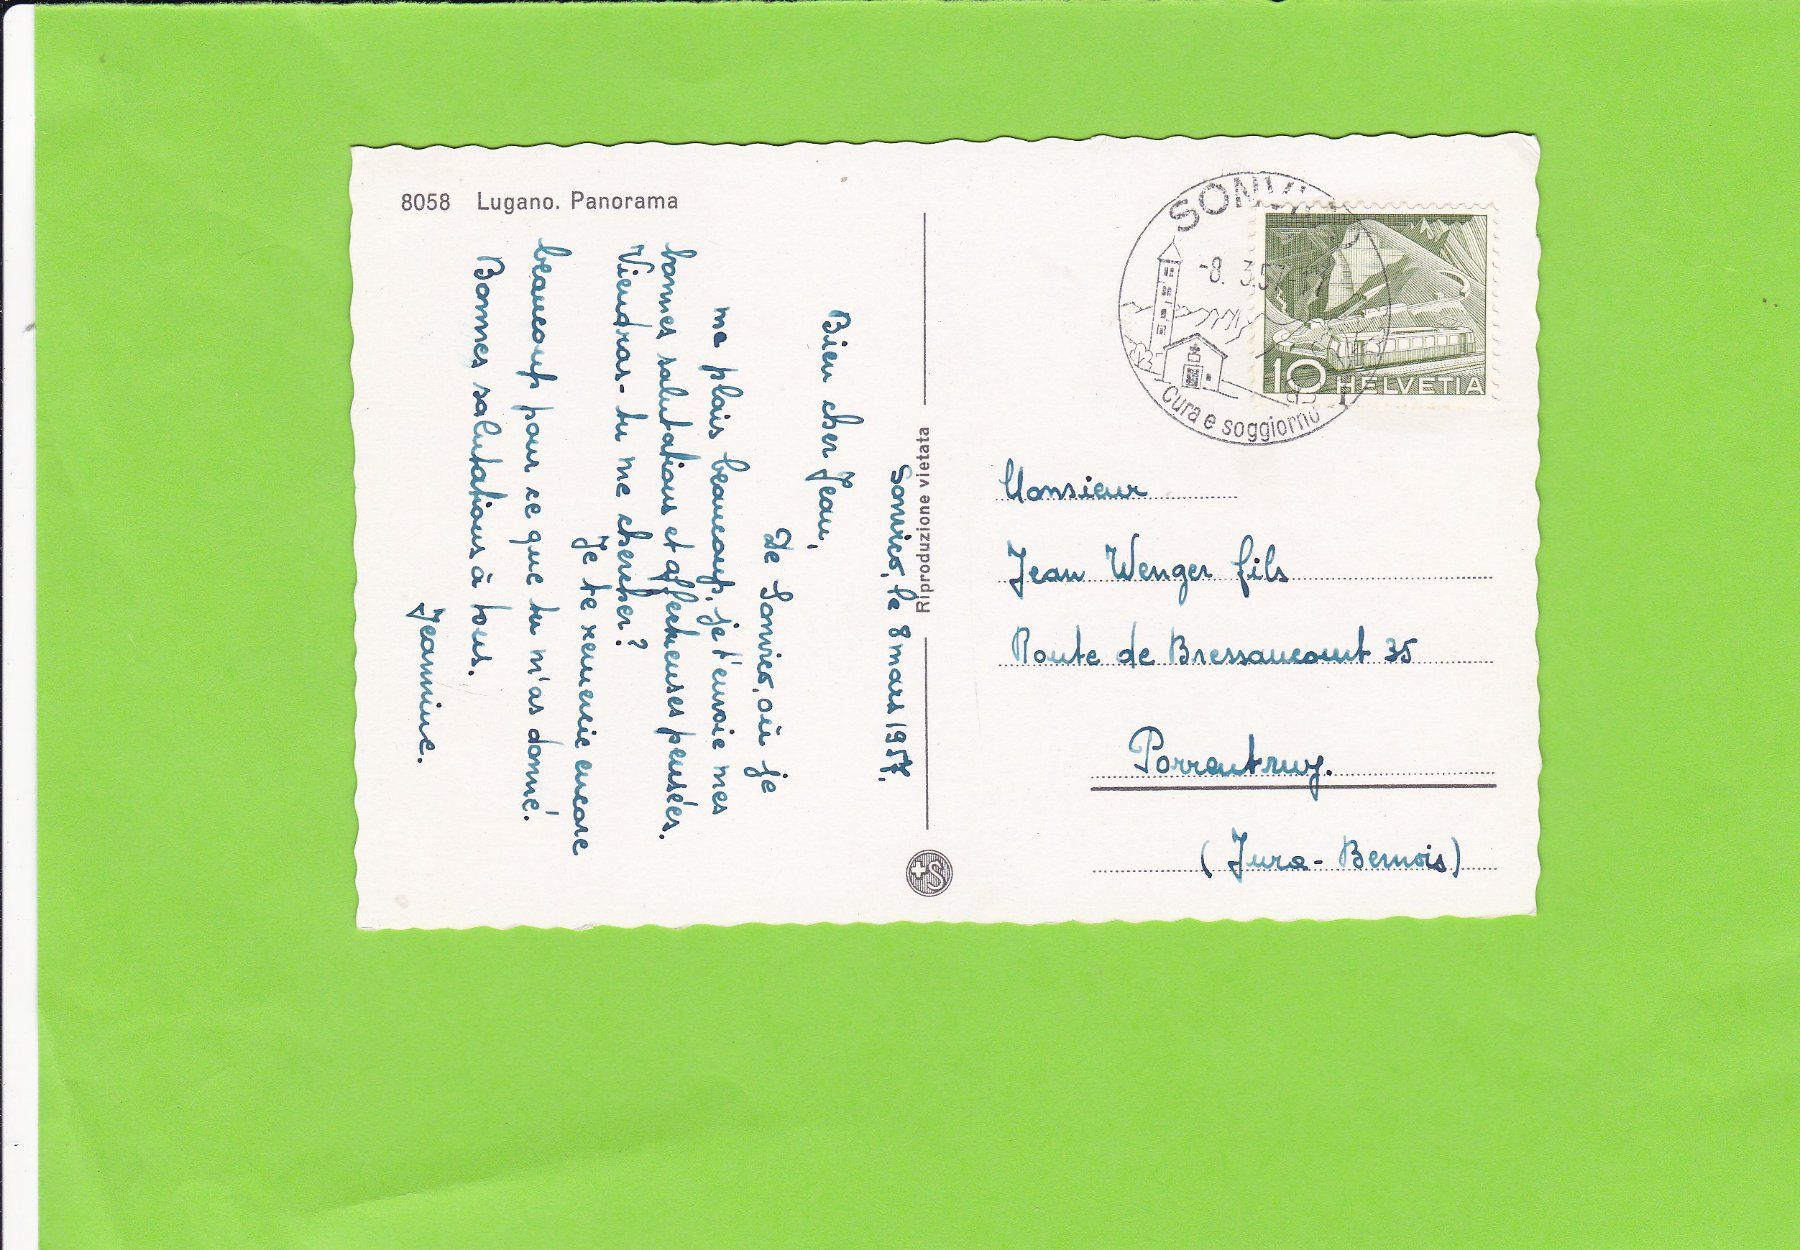 8058 Lugano. Panorama
Sonvico, le 8 mars 1957.
Bien cher Jean,
De Sonvico, où je
me plais beaucoup, je t'envoie mes
bonnes salutations et affectueuses pensées.
Viendras-tu me chercher?
Je te remercie encore
beaucoup pour ce que tu m'as donné.
Bonnes salutations à tous.
Jeannine.
Riproduzione vietata
SONVICO
-8. 3.57
Cura e soggiorno
10 HELVETIA
Monsieur
Jean Wenger fils
Route de Bressaucourt 35
Porrentruy.
(Jura-Bernois)